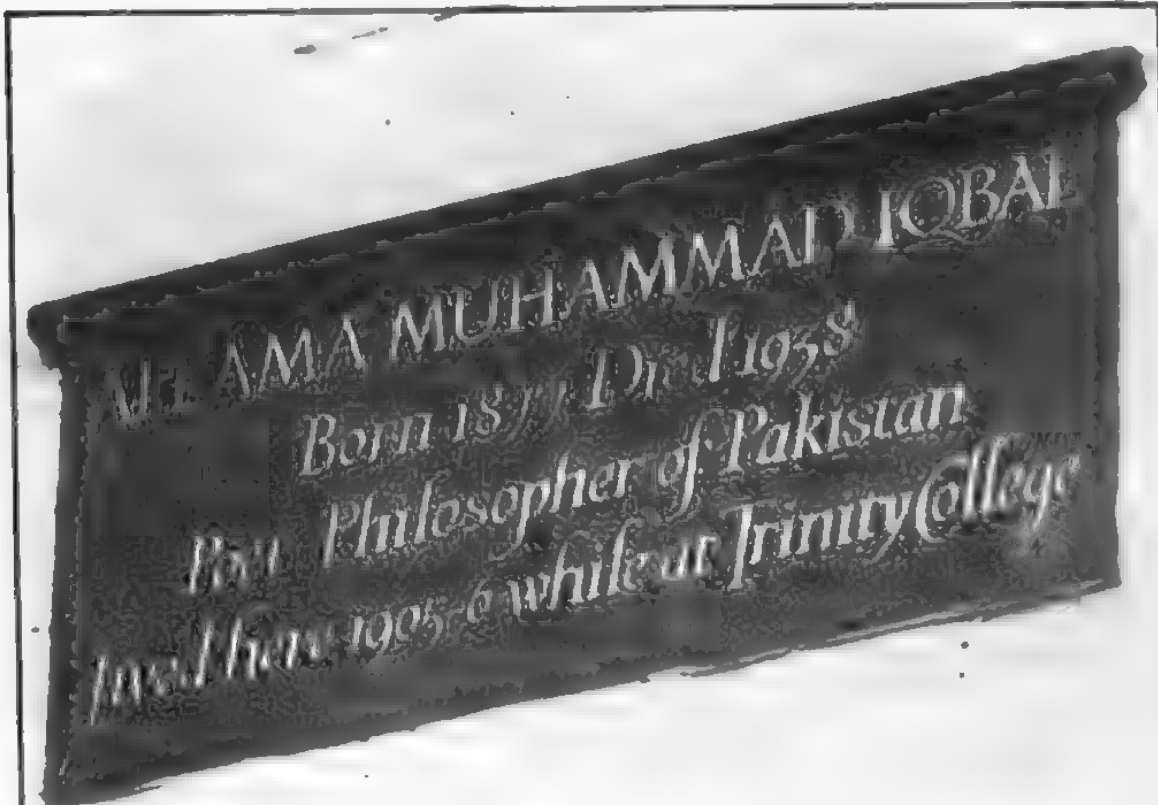 ALLAMA MUHAMMAD IQBAL
Born 1877 Died 1938
Poet Philosopher of Pakistan
lived here 1905-6 while at Trinity College